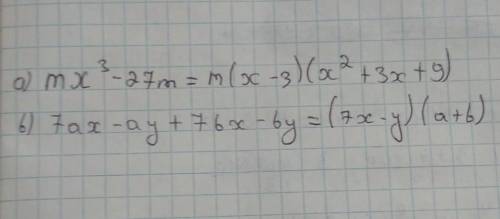 а) mx³-27m = m(x-3)(x²+3x+9)
б) 7ax-ay+7бx-бy=(7x-y)(a+б)